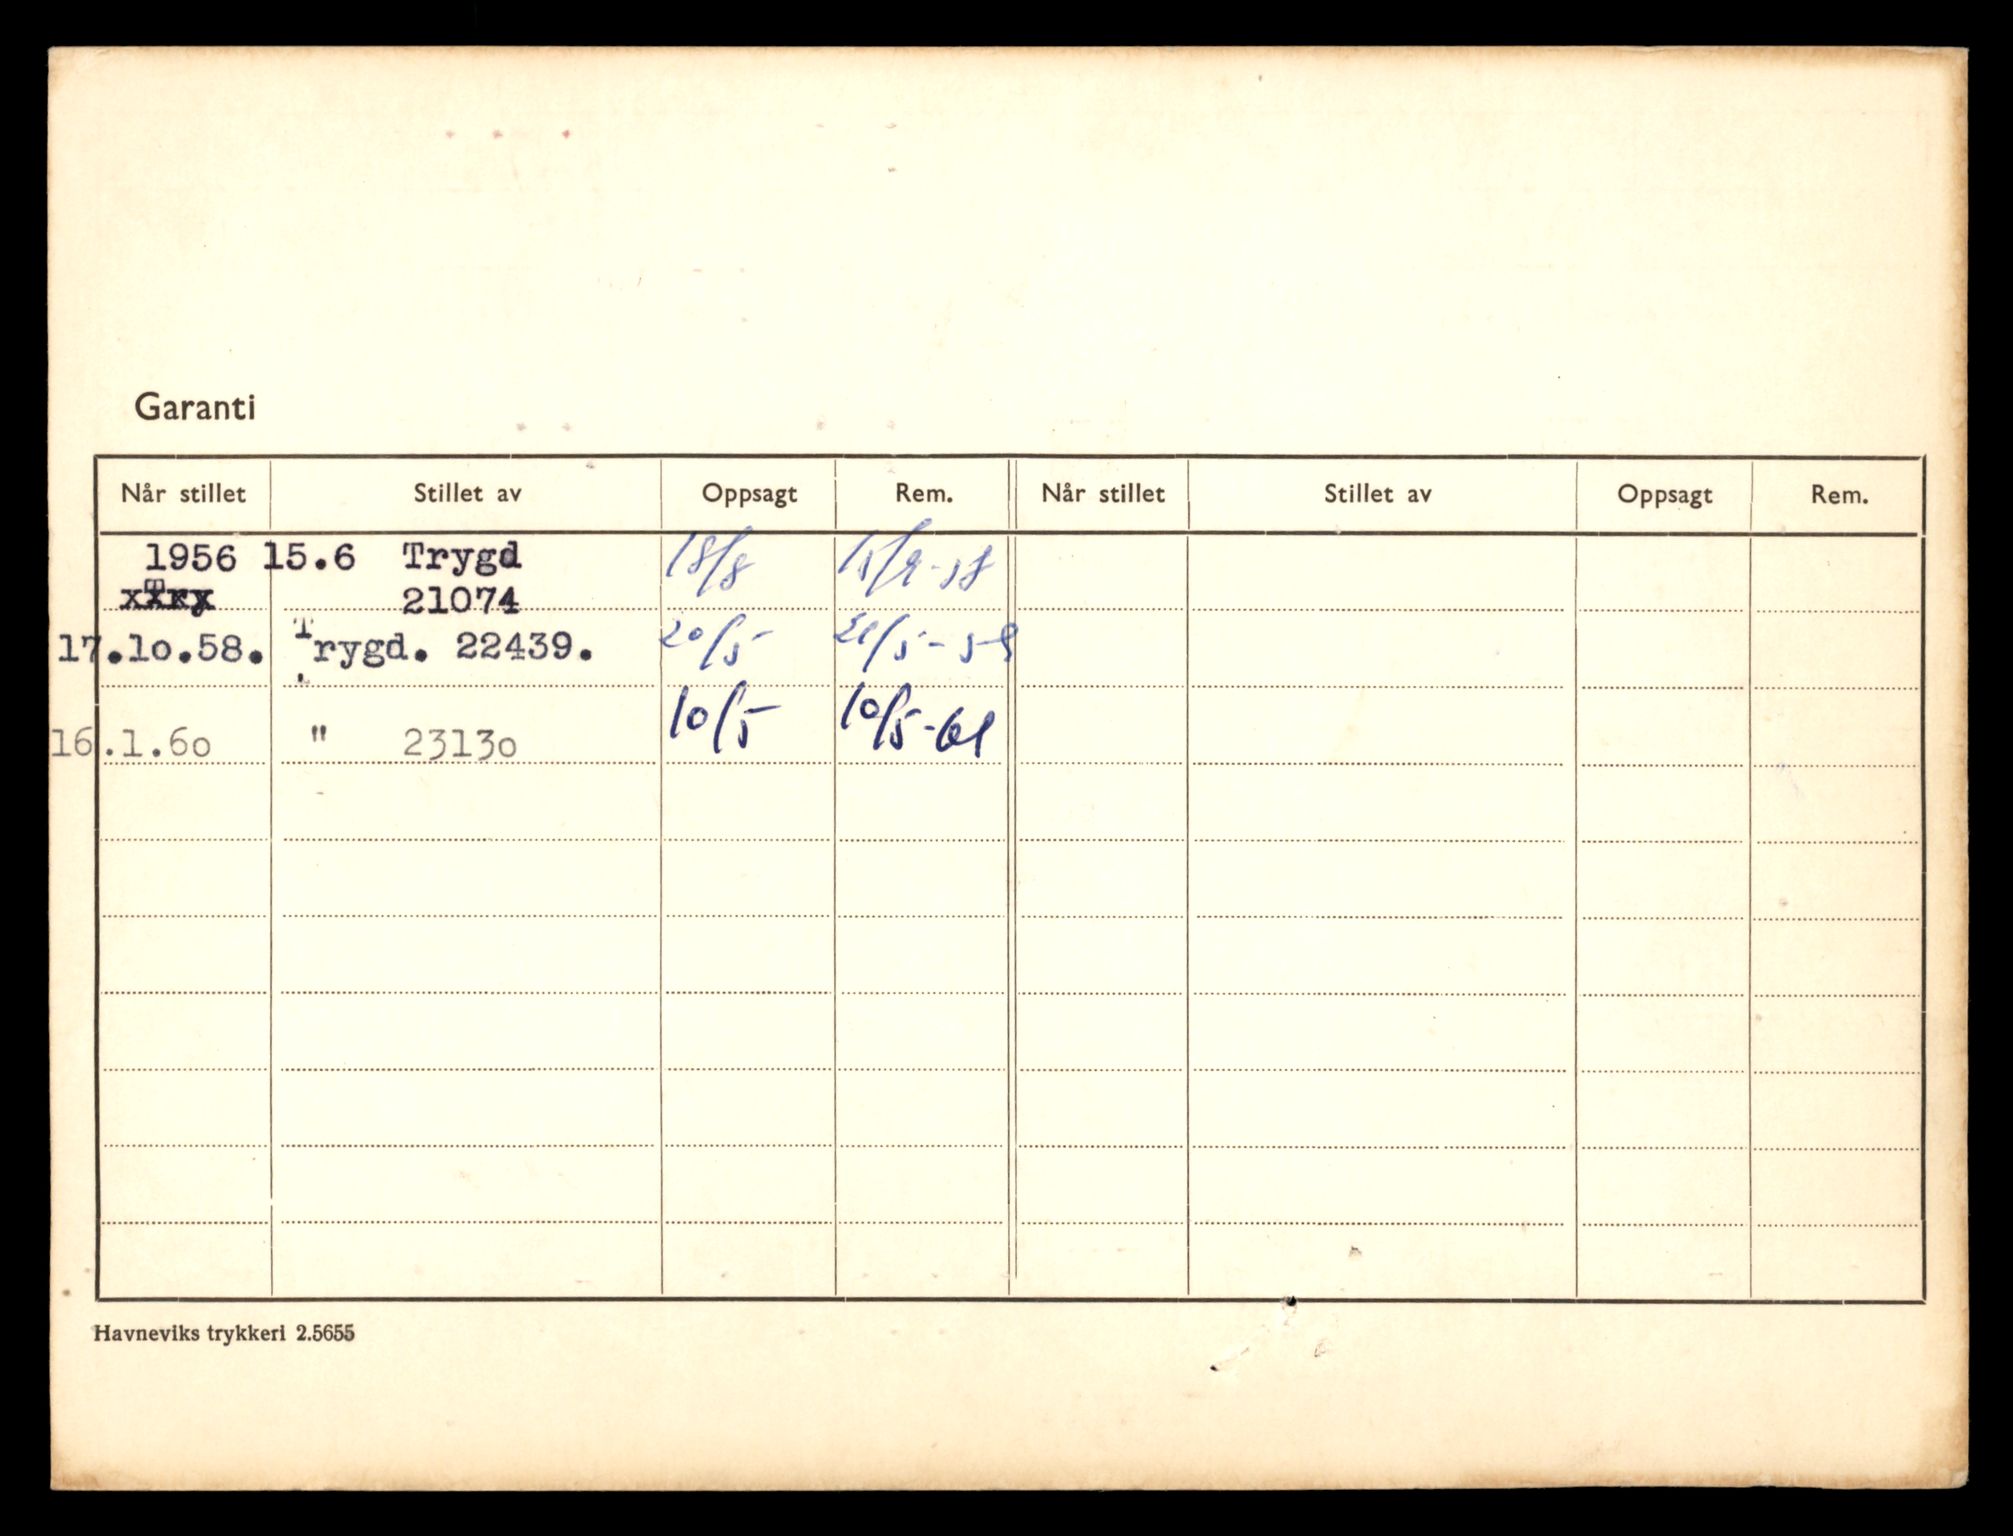 Garanti
Når stillet Stillet av Oppsagt Rem. Når stillet Stillet av Oppsagt Rem.
1956 15.6 Trygd 18/8 15/9-58
21074
17.10.58. Trygd. 22439. 20/5 21/5-59
16.1.60 " 23130 10/5 10/5-61
Havneviks trykkeri 2.5655